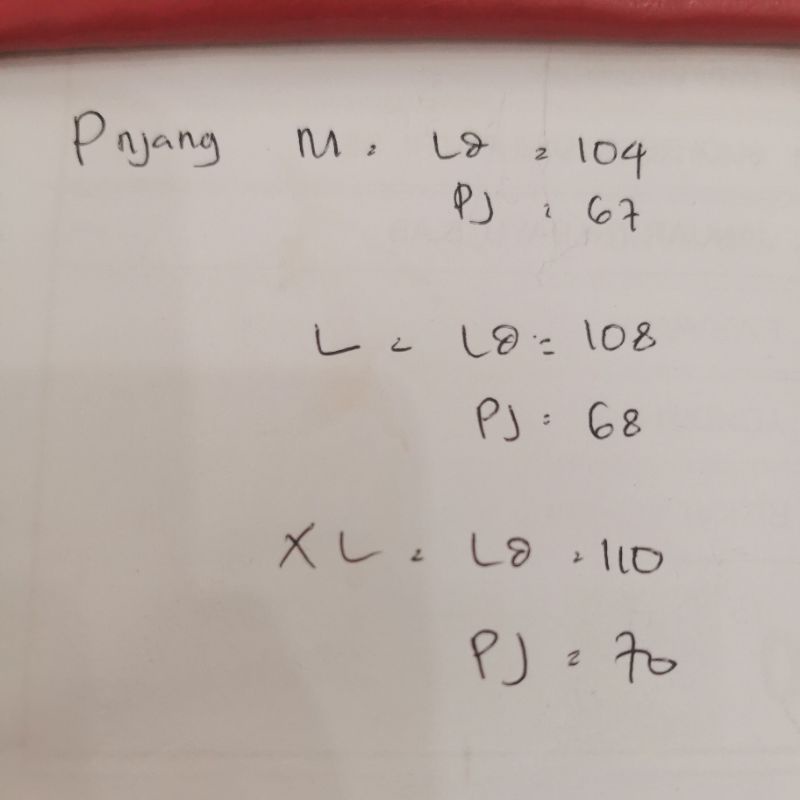 Pnjang M = LD = 104
PJ = 67
L = LD = 108
PJ = 68
XL = LD = 110
PJ = 70